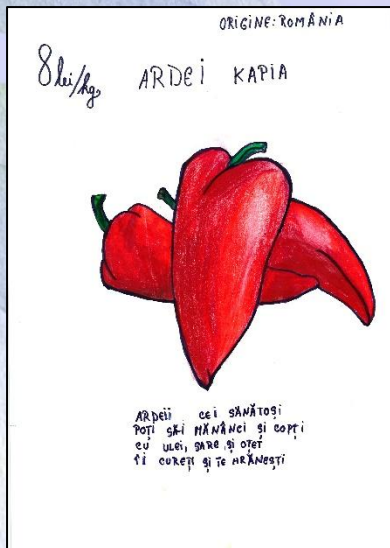 ORIGINE: ROMÂNIA
8 lei/kg
ARDEI KAPIA
ARDEII CEI SĂNĂTOȘI
POȚI SĂ-I MĂNÂNCI ȘI COPȚI
CU ULEI, SARE ȘI OȚET
ÎI CUREȚI ȘI TE HRĂNEȘTI